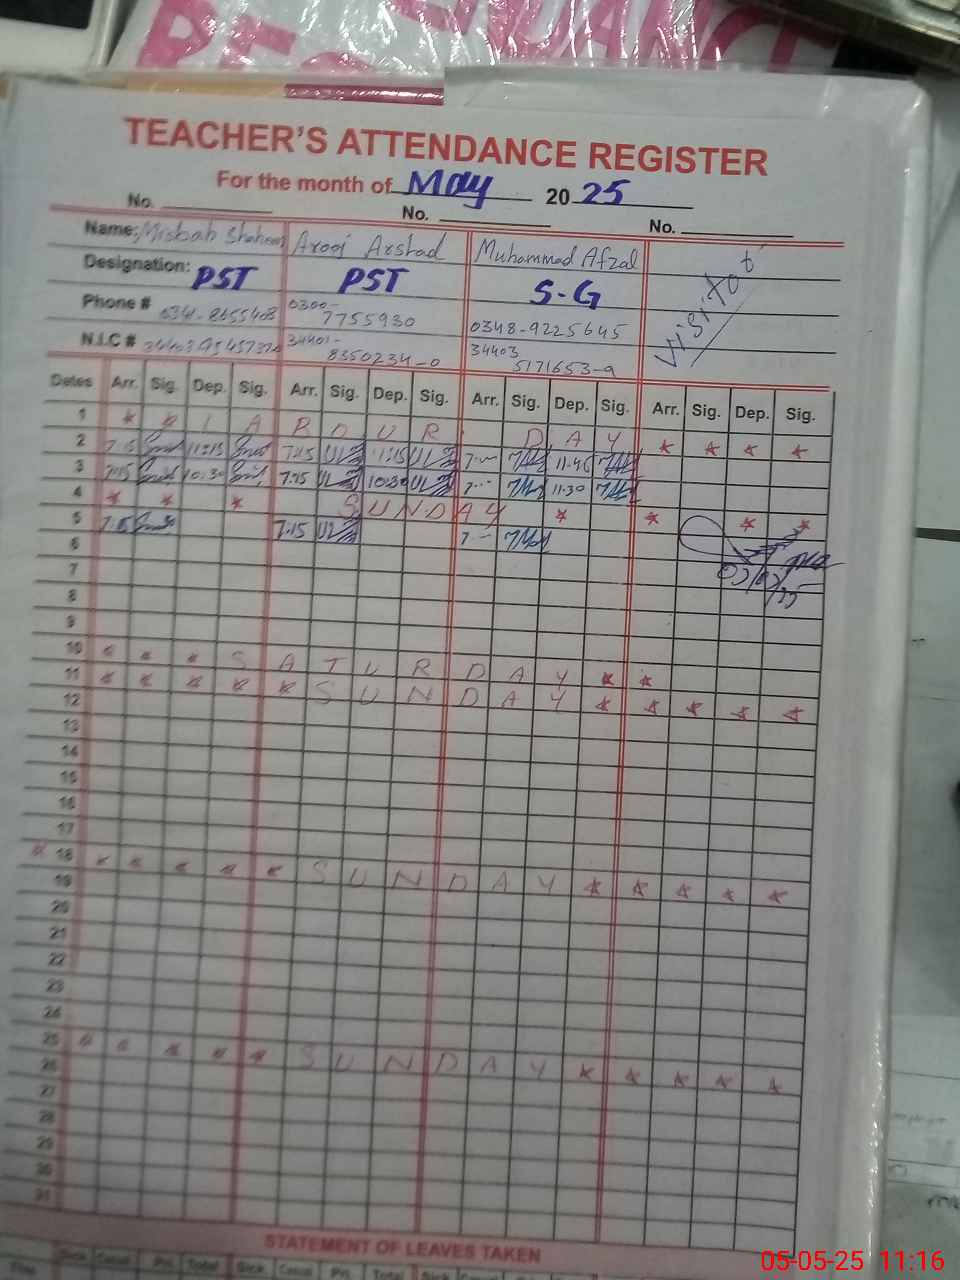 TEACHER'S ATTENDANCE REGISTER
For the month of May 2025
No. No. No.
Name: Misbah Shaheen Arooj Arshad Muhammad Afzal Visitor
Designation: PST PST S-G
Phone # 0300-7755930 0348-9225645
N.I.C # 34401-8350234-0 34403 5171653-9
Dates Arr. Sig. Dep. Sig. Arr. Sig. Dep. Sig. Arr. Sig. Dep. Sig. Arr. Sig. Dep. Sig.
1 * * L A B O U R D A Y * * * *
2 7:15 11:15 7:15 11:15 7:— 11:45
3 7:15 10:30 7:15 10:30 7:— 11:30
4 * * * S U N D A Y * * * *
5 7:15 7:15 7:—
6
7
8
9
10 * * * S A T U R D A Y * *
11 * * * * * S U N D A Y * * * * *
12
13
14
15
16
17
* 18 * * * * * S U N D A Y * * * * *
19
20
21
22
23
24
25 * * * * * S U N D A Y * * * * *
26
27
28
29
30
31
STATEMENT OF LEAVES TAKEN
Sick Casual Pri. Total Sick Casual Pri. Total Sick Casual Pri. Total
05-05-25 11:16